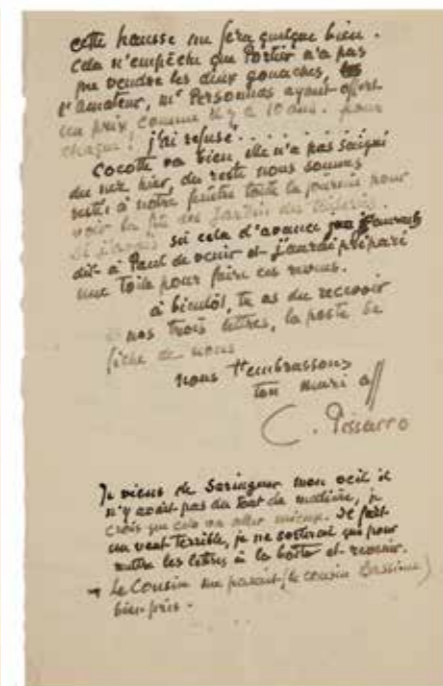 cette hausse me fera quelque bien.
Cela n'empêche que Portier n'a pas
pu vendre les deux gouaches,
l'amateur, Mr Personnas ayant offert
un prix, comme il y a 10 ans. pour
chaque! j'ai refusé. . . . . . .
Cocotte va bien, elle n'a pas saigné
du nez hier, du reste nous sommes
restés à notre fenêtre toute la journée pour
voir la fête des Jardin des
si j'avais su cela d'avance j'aurais
dit à Paul de venir et j'aurai préparé
une toile pour faire ces
à bientôt, tu as du recevoir
nos trois lettres, la poste se
fiche de nous
nous t'embrassons
ton mari aff
C. Pissarro
Je viens de seringuer mon oeil il
n'y avait pas du tout de matière, je
crois que cela va aller mieux. Il fait
un vent terrible, je ne sortirai que pour
mettre les lettres à la boîte et revenir.
Le Cousin me parait (le cousin)
bien pris.